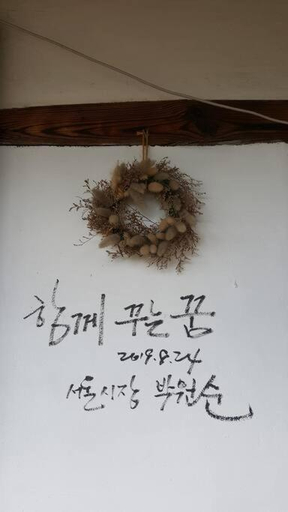 함께 꾸는 꿈
2019.8.24
서울시장 박원순